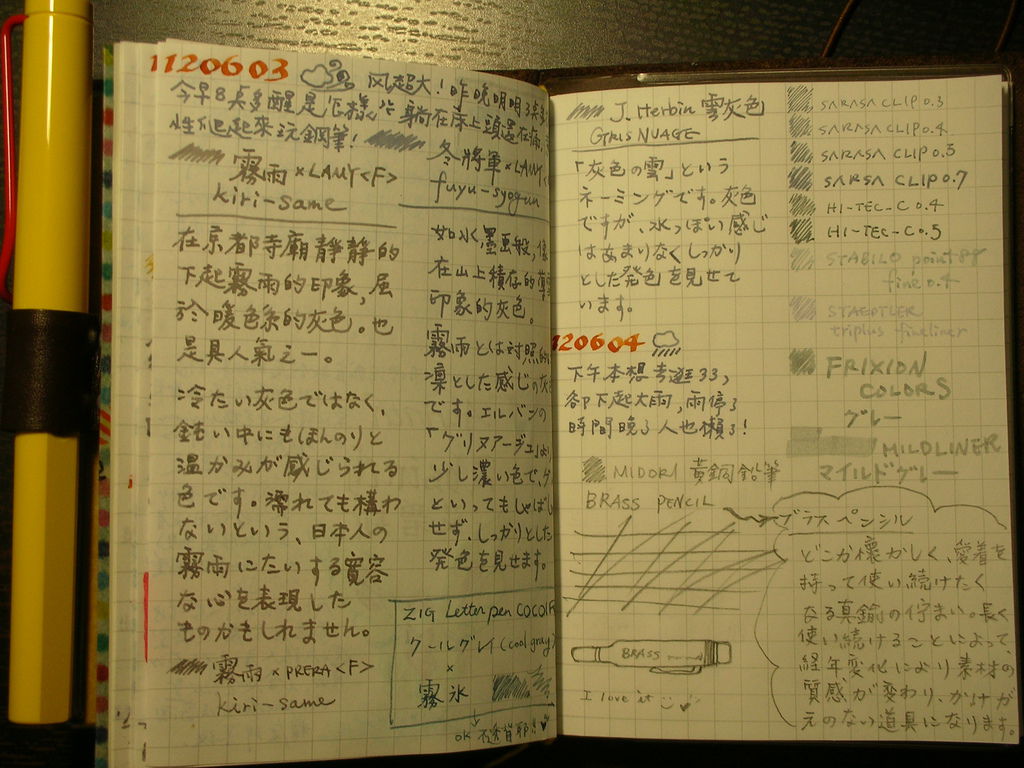 1120603 风超大！昨晚明明3点
今早8点多醒是怎樣 躺在床上頭還在痛，
性爬起來玩鋼筆！
霧雨×LAMY<F>
kiri-same
在京都寺廟靜靜的
下起霧雨的印象，屬
於暖色系的灰色。也
是具人氣之一。
冷たい灰色ではなく、
鈍い中にもほんのりと
温かみが感じられる
色です。濡れても構わ
ないという、日本人の
霧雨にたいする寛容
な心を表現した
ものかもしれません。
霧雨×PRERA<F>
kiri-same
冬將軍×LAMY
fuyu-syogun
如水墨画般，像
在山上積存的
印象的灰色。
霧雨とは対照的
凜とした感じの灰
です。エルバンの
「グリヌアージュ」より
少し濃い色で、グ
といってもしゃばし
せず、しっかりとした
発色を見せます。
ZIG Letter pen COCOIR
クールグレイ(cool gray)
×
霧氷
↓
OK 不透背耶!!
J. Herbin 雲灰色
GRIS NUAGE
「灰色の雲」という
ネーミングです。灰色
ですが、水っぽい感じ
はあまりなくしっかり
とした発色を見せて
います。
120604
下午本想去逛33，
卻下起大雨，雨停了
時間晚了人也懶了！
MIDORI 黃銅鉛筆
BRASS PENCIL
BRASS
I love it
SARASA CLIP 0.3
SARASA CLIP 0.4
SARASA CLIP 0.5
SARSA CLIP 0.7
HI-TEC-C 0.4
HI-TEC-C 0.5
STABILO point 88
fine 0.4
STAEDTLER
triplus fineliner
FRIXION
COLORS
グレー
MILDLINER
マイルドグレー
ブラス ペンシル
どこか懐かしく、愛着を
持って使い続けたく
なる真鍮の佇まい。長く
使い続けることによって
経年変化により素材の
質感が変わり、かけが
えのない道具になります。